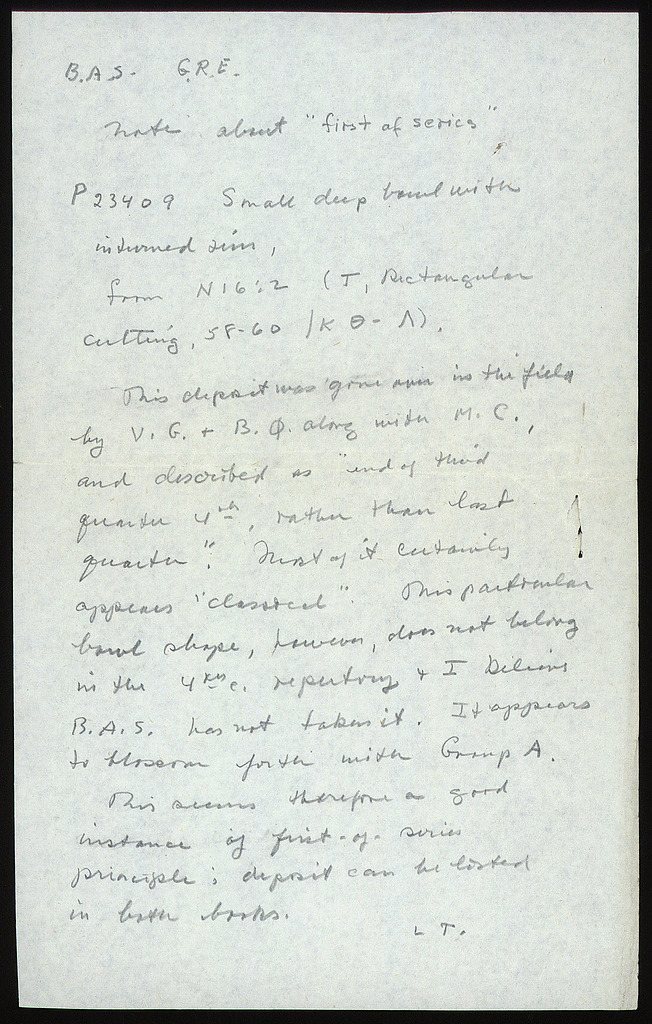 B.A.S. G.R.E.
Note about "first of series"
P 23409 Small deep bowl with
inturned rim,
from N 16:2 (T, Rectangular
cutting, 58-60 / Κ Θ - Λ).
This deposit was gone over in the field
by V. G. + B. Φ. along with M. C.,
and described as "end of third
quarter 4th, rather than last
quarter". Most of it certainly
appears "classical". This particular
bowl shape, however, does not belong
in the 4th c. repertory + I believe
B.A.S. has not taken it. It appears
to blossom forth with Group A.
This seems therefore a good
instance of first-of-series
principle; deposit can be listed
in both books.
L T.